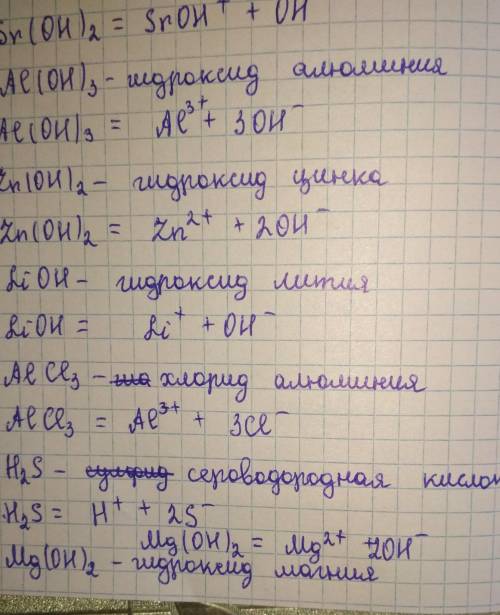 Sr(OH)₂ = SrOH⁺ + OH
Al(OH)₃ - гидроксид алюминия
Al(OH)₃ = Al³⁺ + 3OH⁻
Zn(OH)₂ - гидроксид цинка
Zn(OH)₂ = Zn²⁺ + 2OH⁻
LiOH - гидроксид лития
LiOH = Li⁺ + OH⁻
AlCl₃ - хлорид алюминия
AlCl₃ = Al³⁺ + 3Cl⁻
H₂S - сероводородная кислот
H₂S = H⁺ + 2S⁻
Mg(OH)₂ = Mg²⁺ + 2OH⁻
Mg(OH)₂ - гидроксид магния